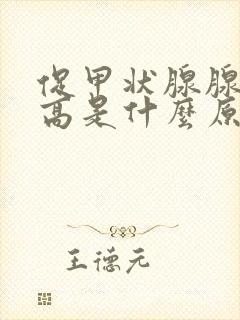 促甲状腺腺
高是什麼原
王德元